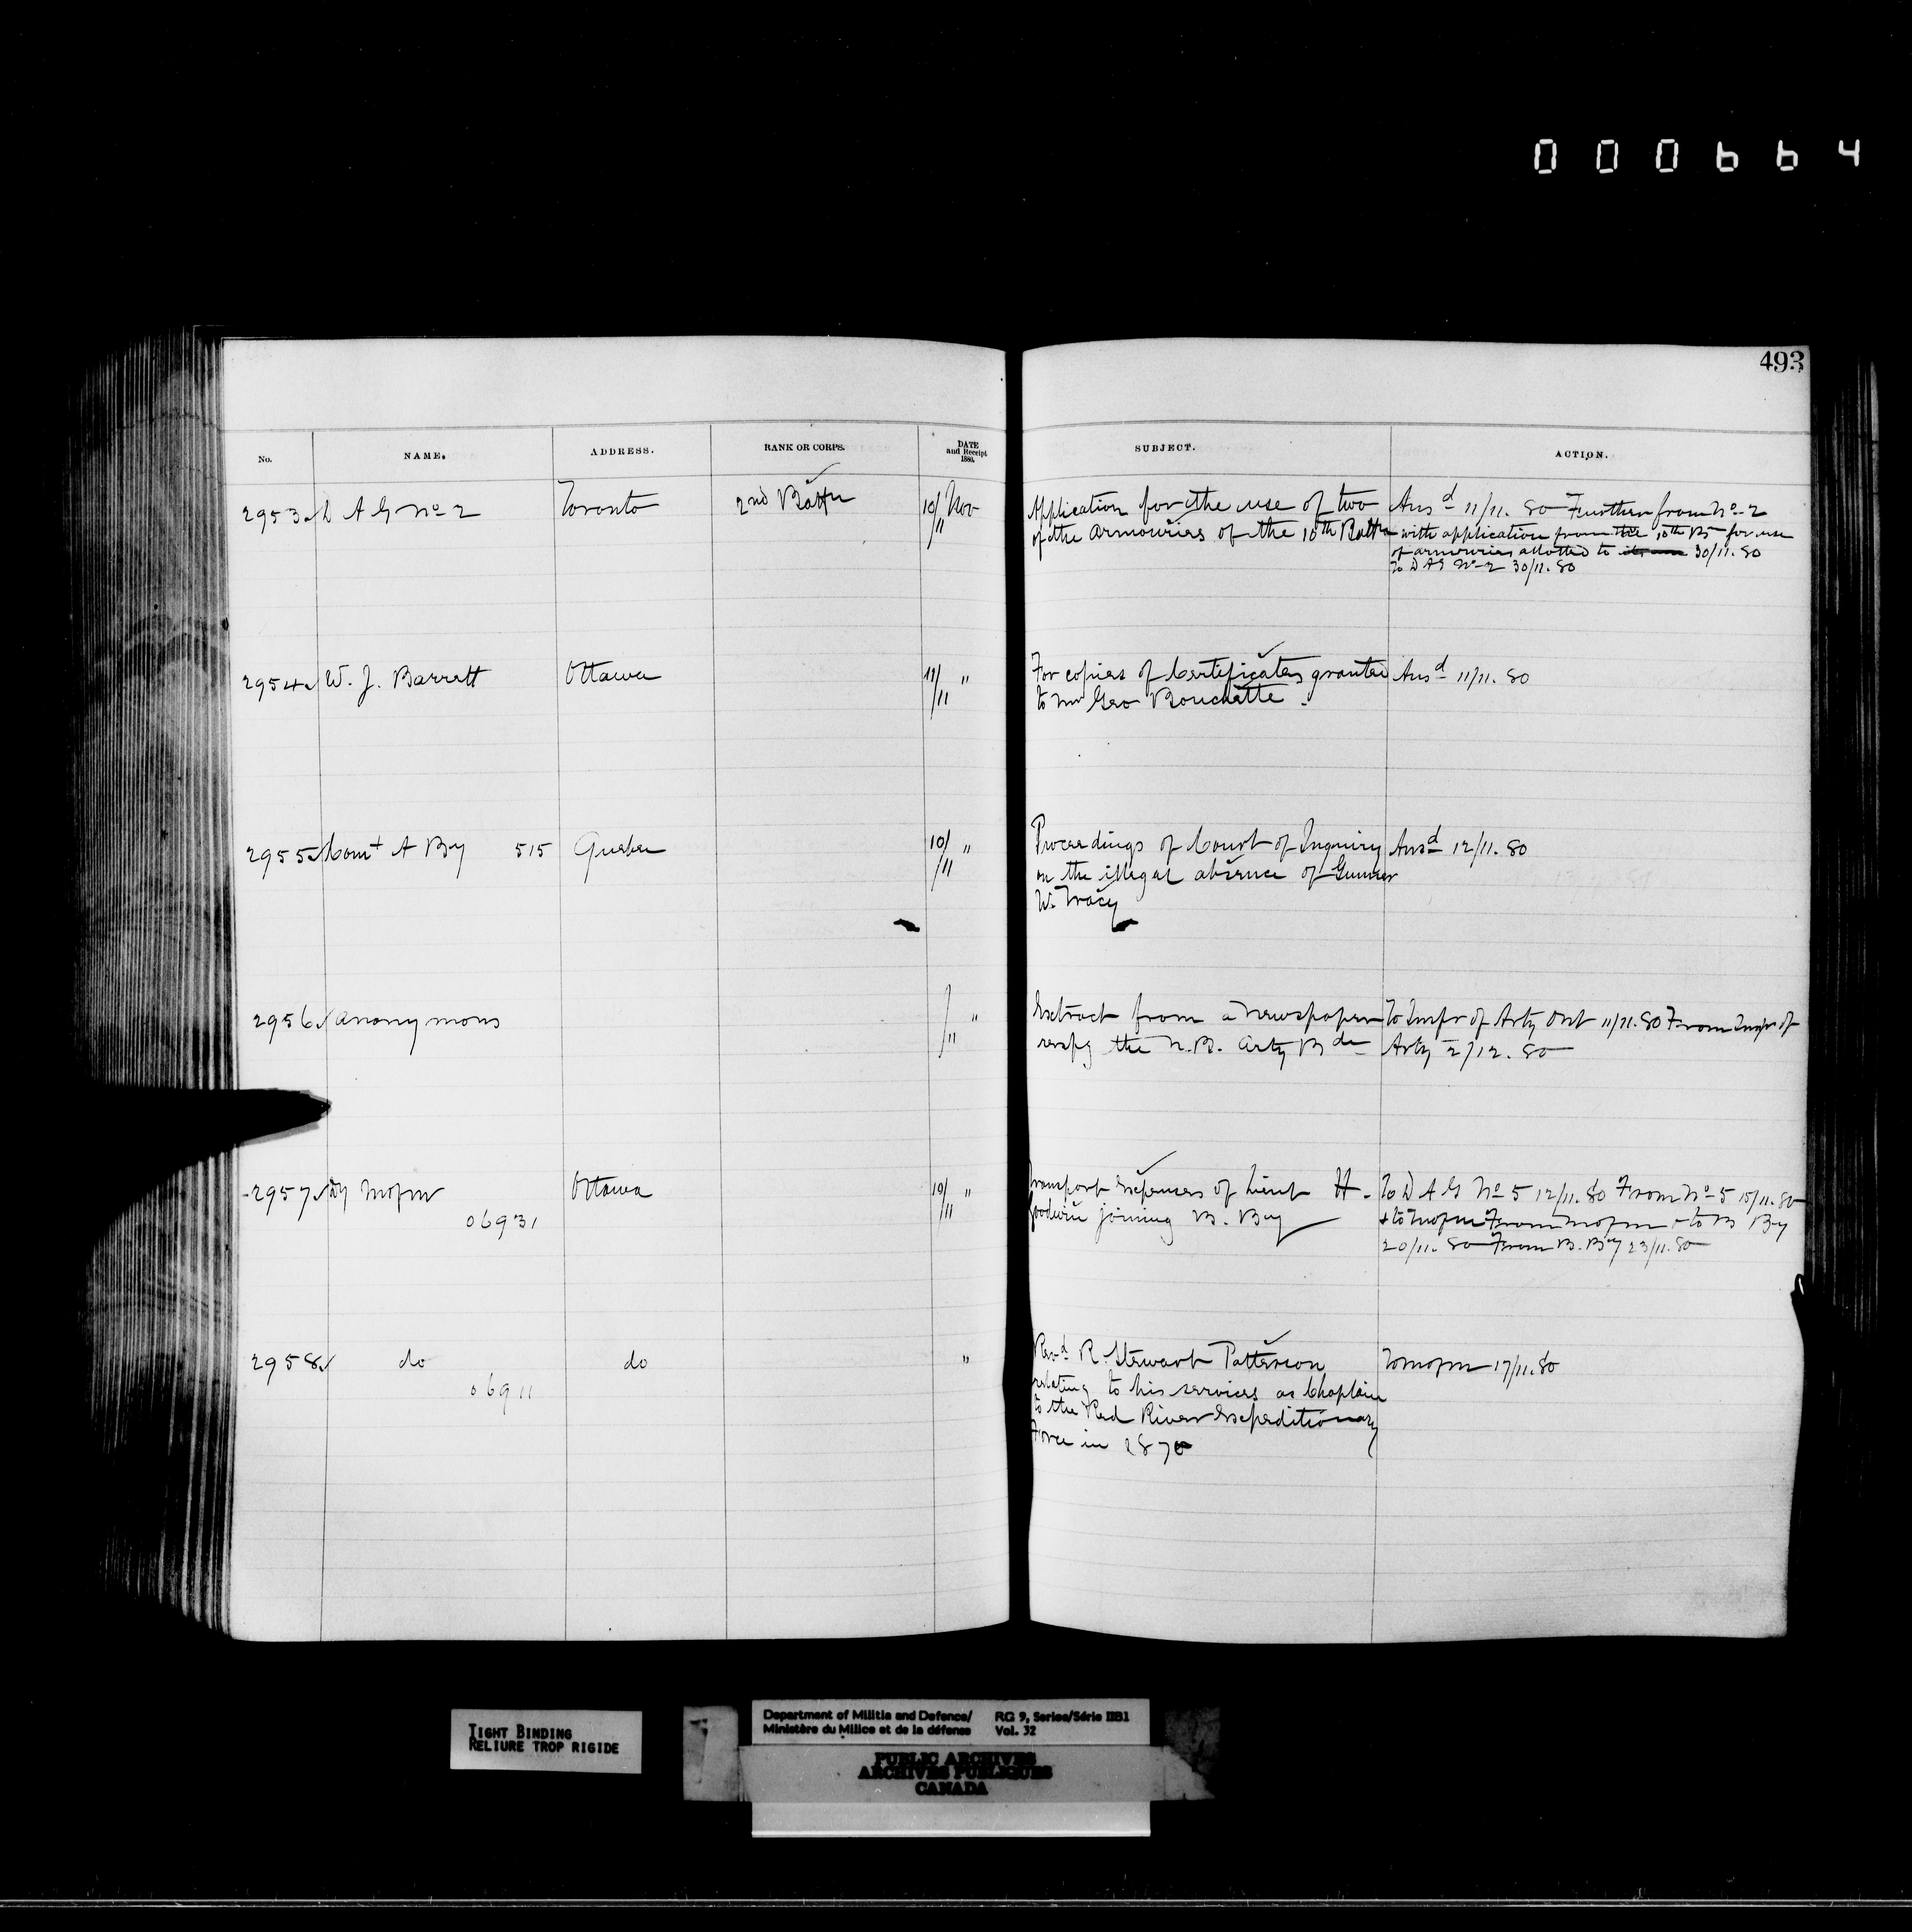 000664
493
No. NAME. ADDRESS. RANK OR CORPS. DATE and Receipt 1880. SUBJECT. ACTION.
2953 D A G No 2 Toronto 2nd Battn 10/11 Nov Application for the use of two Ansd 11/11. 80 Further from No 2
of the armouries of the 10th Battn with application from the 10th Bn for use
of armouries allotted to 30/11. 80
To D A G No 2 30/11. 80
2954 W. J. Barrett Ottawa 11/11 " For copies of Certificates granted Ansd 11/11. 80
to Mr Geo Bouchette.
2955 Comt A By 515 Quebec 10/11 " Proceedings of Court of Inquiry Ansd 12/11. 80
on the illegal absence of Gunner
W. Tracy
2956 Anonymous /11 " Extract from a newspaper To Inspr of Arty Ont 11/11. 80 From Inspr of
respg the N. B. Arty Bde Arty 2/12. 80
2957 Dy M of M Ottawa 10/11 " Transport Expenses of Lieut H. To D A G No 5 12/11. 80 From No 5 15/11. 80
06931 Goodwin joining B. By & to M of M From M of M & to B By
20/11. 80 From B. By 23/11. 80
2958 do do " Revd R Stewart Patterson To M of M 17/11. 80
06911 relating to his services as Chaplain
to the Red River Expeditionary
Force in 1870
TIGHT BINDING
RELIURE TROP RIGIDE
Department of Militia and Defence/ RG 9, Series/Série IIB1
Ministère du Milice et de la défense Vol. 32
PUBLIC ARCHIVES
ARCHIVES PUBLIQUES
CANADA